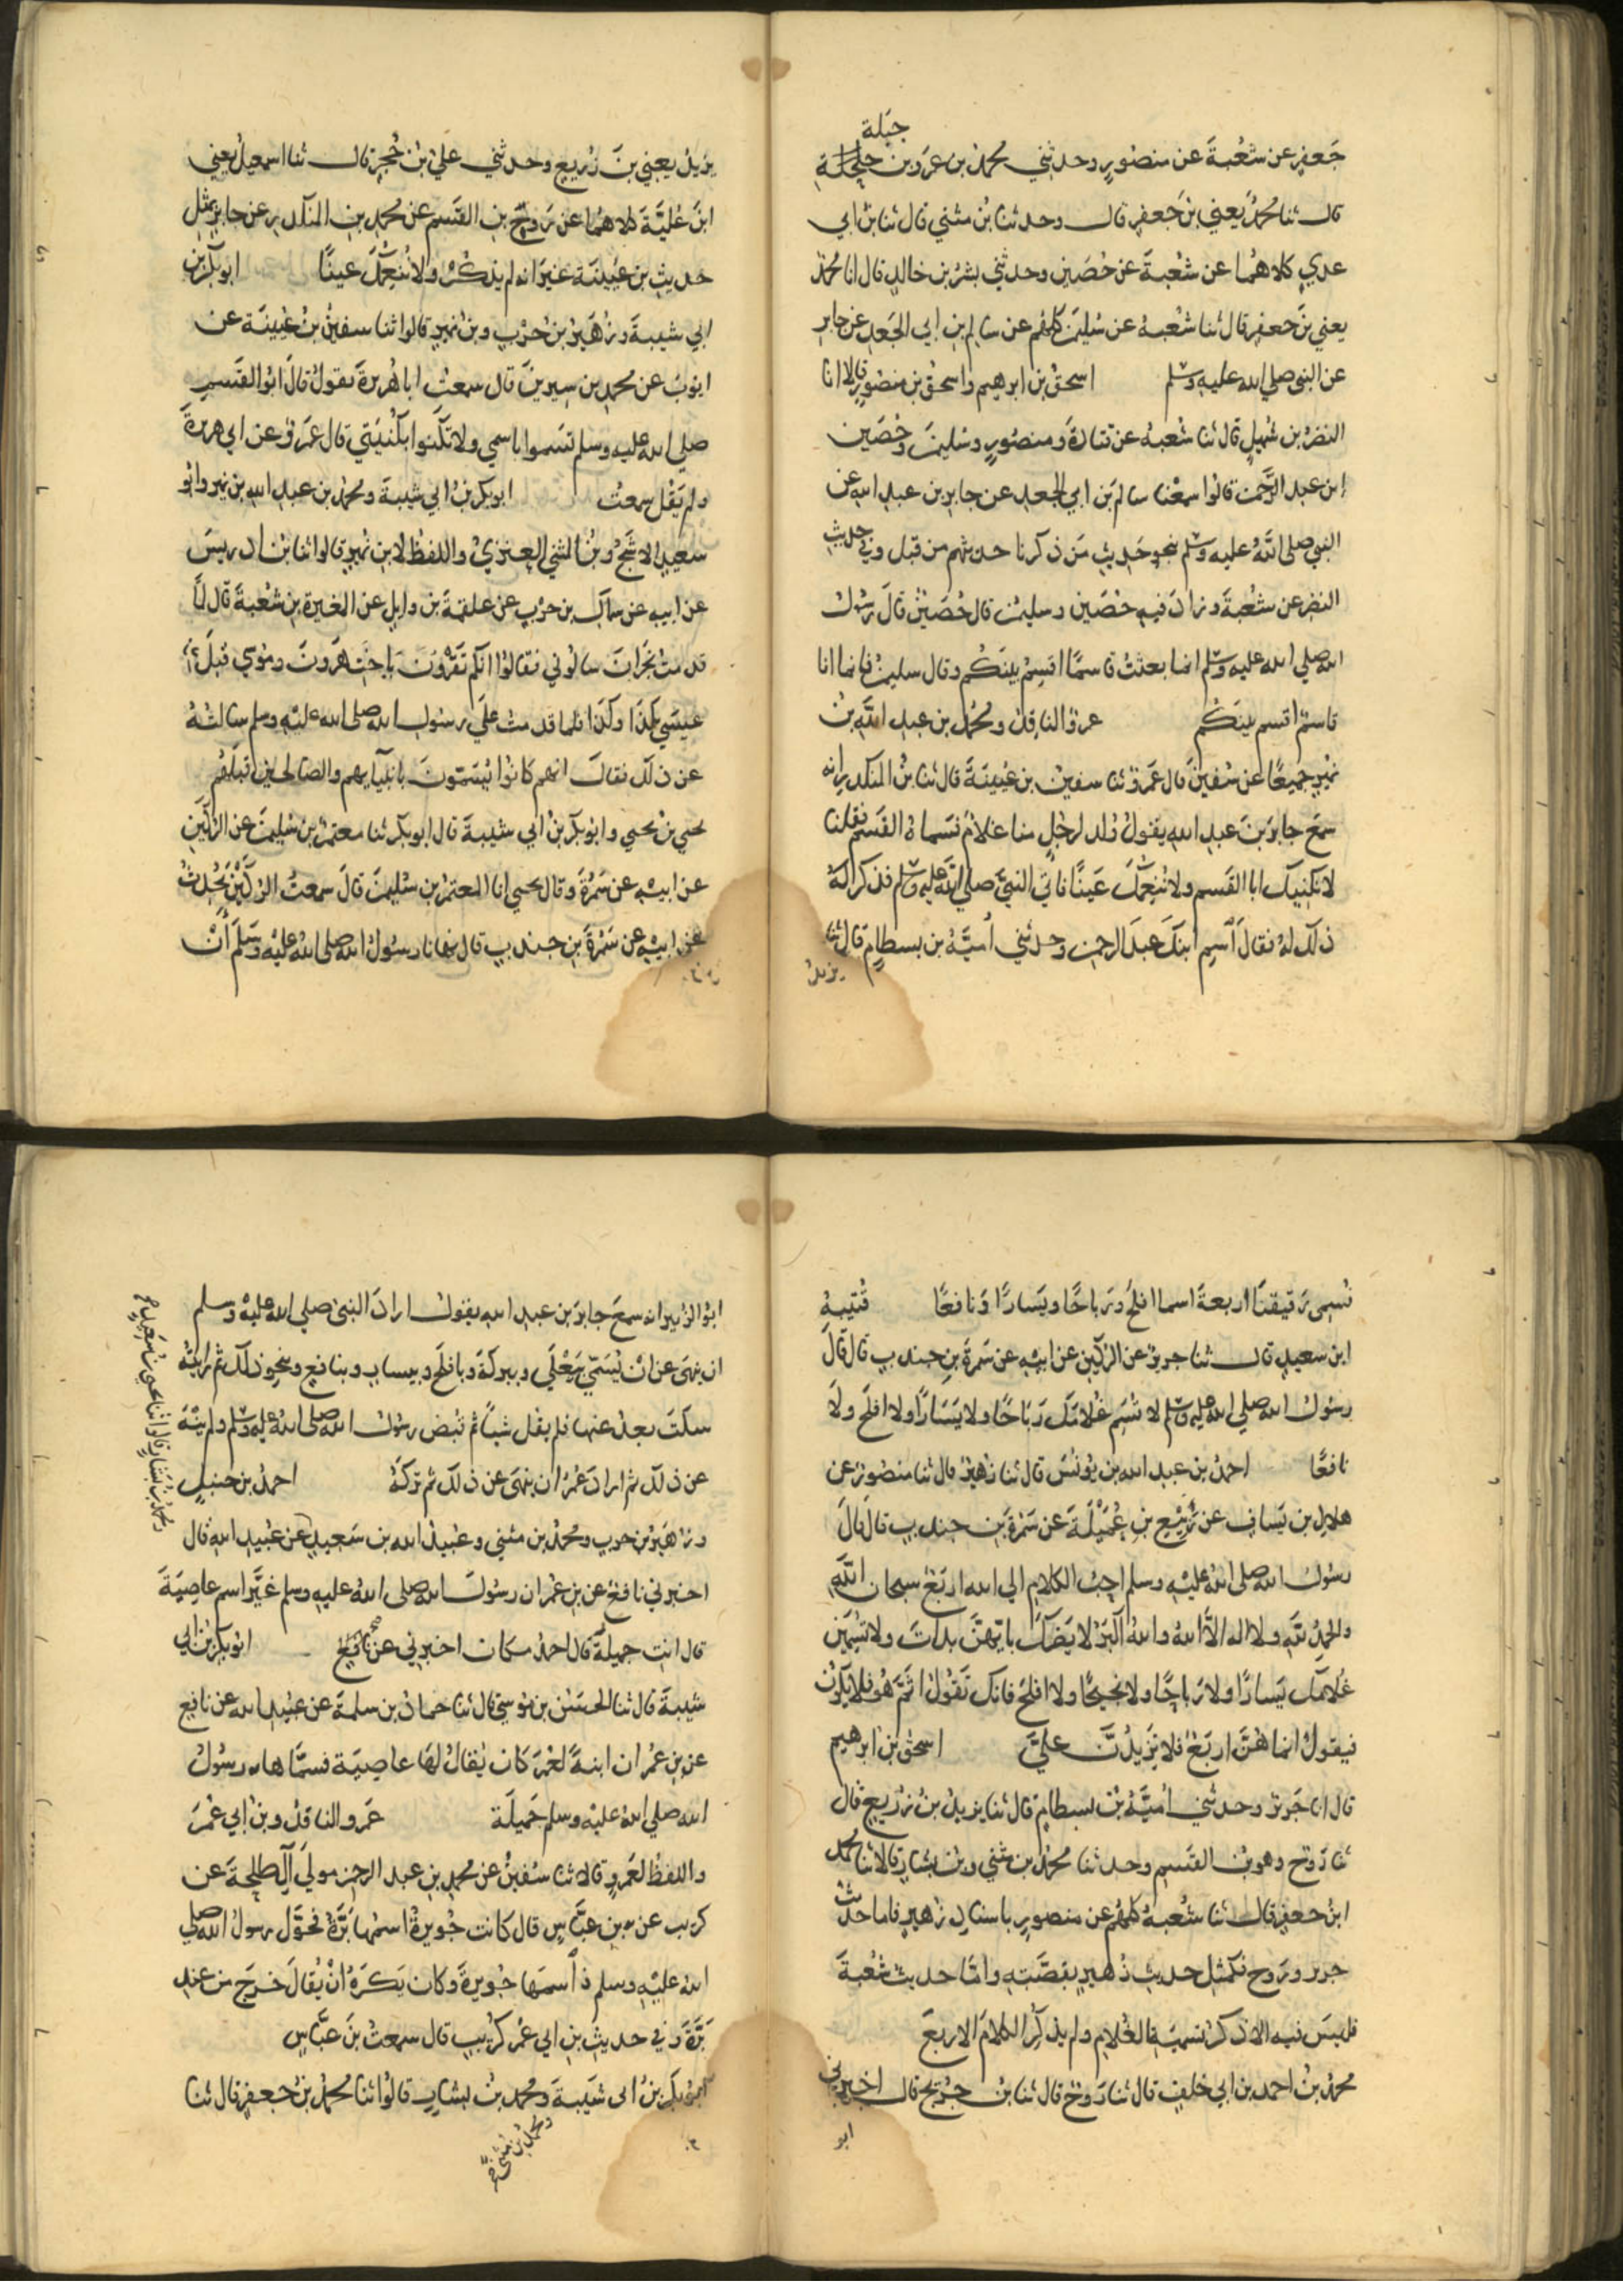 جبلة
جَعفرٍ عن شعْبةَ عن منصُورٍ وحدثني محمدُ بن عَمرو بن
قال ثنا محمدٌ يَعني بنَ جَعفرٍ قال وحدثنا بنُ مثني قال ثنا بنُ ابي
عدي كلاهُما عن شعْبةَ عن حُصَينٍ وحدثني بشرُ بن خالدٍ قال انا محمدٌ
يعني بنَ جعفرٍ قال ثنا شعْبةُ عن سُليمنَ كلهُم عن سالم بنِ ابي الجَعدِ عن جابرٍ
عن النبي صلي الله عليه وسلم اسحقُ بن ابرهيم واسحقُ بن منصُورٍ قالا انا
النضرُ بن شُميلٍ قال ثنا شعْبةُ عن قتادةَ ومنصُورٍ وسُليمنَ وحُصَين
ابن عبد الرَّحمن قالوا سمعْنا سالمَ بن ابي الجعدِ عن جابرِ بن عبد الله عن
النبي صلي اللهُ عليه وسلم بنحو حَديثِ مَن ذكرنا حديثهم من قبل وفي حديثِ
النضرِ عن شعْبةَ وزادَ فيهِ حُصَين وسليمن قال حُصَينٌ قالَ رسُول
الله صلي الله عليه وسلم انما بعثتُ قاسمًا اقسِمُ بينَكُم وقال سليمنُ فانما انا
قاسمٌ اقسم بينَكُم عمرو الناقدُ ومحمدُ بن عبد اللهِ بنُ
نميرٍ جميعًا عن سُفينَ قال عَمرٌو ثنا سفينُ بن عُيينةَ قال ثنا بنُ المنكدرِ انه
سمعَ جابرَ بنَ عبدِ الله يقولُ وُلد لرجُلٍ منا غلامٌ فسَماهُ القسمَ فقلنا
لا نكنيكَ ابا القَسم ولا نُنعِمُكَ عَينًا فاتي النبيَّ صلي الله عليه وسلم فذكرَ لهُ
ذلكَ لهُ فقالَ أسمِ ابنكَ عبدَ الرحمنِ وحدثني أميَّةُ بن بسطامٍ قال ثنا
يزيدُ
يزيدُ يعني بنَ زُريعٍ وحدثني عليُ بنُ حُجرٍ قال ثنا اسمعيلُ يعني
ابنَ عُليَّةَ كلاهُما عن رَوحِ بنِ القَسم عن محمدِ بنِ المنكدرِ عن جابرٍ بمثلِ
حديثِ بن عُيينَة غيرَ انه لم يذكُرْ ولا نُنعِمُكَ عينًا ابو بكرِ بن
ابي شيبةَ وزُهَيرُ بنُ حَرْبٍ وبنُ نُميرٍ قالوا ثنا سفينُ بنُ عُيينَة عن
ايوبَ عن محمدِ بن سيرينَ قال سمعتُ ابا هُريرةَ يقولُ قالَ ابو القَسمِ
صلي الله عليه وسلم تسَموا باسمي ولا تكنوا بكُنيَتي قال عَمرٌو عن ابي هريرةَ
ولم يَقُل سمعتُ ابو بكر بنُ ابي شيبةَ ومحمدُ بن عبدِ اللهِ بن نميرٍ وابُو
سَعيدٍ الاشجُّ وبنُ المثني العنَزيُ واللفظُ لابن نُميرٍ قالوا ثنا بنُ ادريسَ
عن ابيهِ عن سماكِ بن حَرْبٍ عن علقمةَ بن وايلٍ عن المغيرةِ بن شعْبةَ قال لمَّا
قدمتُ نجرَانَ سالُوني فقالوا انكم تقرؤونَ يا اختَ هَرونَ ومُوسي قبلَ
عيسَي بكذا وكذا فلما قدمتُ علَي رسُولِ الله صلي الله عليه وسلم سالتُهُ
عن ذلكَ فقالَ انهم كانُوا يُسَمّونَ بانبيَآئهم والصالحينَ قبلَهُم
يحيي بن يحيي وابو بكرِ بنُ ابي شيبةَ قال ابو بكرٍ ثنا معتمرُ بن سُليمنَ عن الرُّكَينِ
عن ابيهِ عن سَمُرةَ وقال يحيي انا المعتمرُ بن سُليمنَ قالَ سمعتُ الركَينَ يُحدثُ
عن ابيهِ عن سَمُرةَ بن جندبٍ قال نهانا رسُولُ الله صلي اللهُ عليه وسَلم أنْ
نُسَمِي رَقيقنَا اربعةَ اسما افلحَ ورَباحًا ويَسارًا ونَافعًا قُتَيبةُ
ابن سعيدٍ قال ثنا جريرٌ عن الركَينِ عن ابيهِ عن سَمُرةَ بن جندبٍ قال قالَ
رسُولُ الله صلي الله عليه وسلم لا تُسَمِ غُلامَكَ رَبَاحًا ولا يسَارًا ولا افلحَ ولَا
نافعًا احمدُ بن عبد الله بن يُونسَ قال ثنا زهيرٌ قال ثنا منصُورٌ عن
هلالِ بن يَسافٍ عن رَبيعِ بنِ عُمَيْلَةَ عن سَمُرةَ بن جندبٍ قال قالَ
رسُولُ الله صلي اللهُ عليه وسلم احبُ الكلامِ الي الله اربَعٌ سبحان اللَّهِ
والحمدُ للَّهِ ولا اله الاَّ اللهُ واللهُ اكبرُ لا يَضُركَ بايّهنَّ بداتَ ولا تُسَمِّيَن
غُلامكَ يَسارًا ولا رَباحًا ولا نجيحًا ولا افلحَ فانكَ تقُولُ اثَمَّ هُو فلا يكُون
فيقولُ انما هُنَّ اربَعٌ فلا تزيدُنَّ عليَّ اسحقُ بن ابرهيم
قال انا جريرٌ وحدثني أميَّةُ بنُ بسطامٍ قال ثنا يزيدُ بنُ زُرَيعٍ قال
ثنا رَوحٌ وهو بنُ القَسمِ وحدثنا محمدُ بن مثني وبنُ بشارٍ قالا ثنا محمدُ
ابنُ جعفرٍ قال ثنا شعْبةُ كلهُم عن منصورٍ باسنادِ زهيرٍ فاما حديثُ
جريرٍ ورَوحٍ فكمثلِ حديثِ زُهيرٍ بقصَّتهِ وامَّا حديثُ شُعْبةَ
فليسَ فيه الا ذكرُ تسميةِ الغُلامِ ولم يذكُر الكلامَ الاربعَ
محمدُ بنُ احمد بن ابي خلفٍ قال ثنا رَوحٌ قال ثنا بنُ جُرَيجٍ قال اخبرني
ابو
ابُو الزبيرِ انه سمعَ جابرَ بن عبدِ الله يقولُ ارادَ النبيُ صلي الله عليه وسلم
ان ينهَي عن انْ يُسَمَّي بيَعْلَي وببركةَ وبافلحَ وبيسارٍ وبنافعٍ وبنحوِ ذلكَ ثم رايتهُ
سكتَ بعدُ عنها فلم يقُل شيئًا ثم قُبضَ رسُولُ الله صلي اللهُ عليه وسلم ولم ينهَ
عن ذلكَ ثم ارادَ عُمَرُ ان ينهَي عن ذلكَ ثم تركهُ احمدُ بن حنبلٍ
وزهَيرُ بن حربٍ ومحمدُ بن مثني وعُبيدُ الله بن سَعيدٍ عن عُبيدِ اللهِ قال
اخبرني نافعٌ عن بنِ عُمَر ان رسُولَ الله صلي اللهُ عليه وسلم غيَّر اسم عاصِيَةَ
قال انتِ جميلةُ قال احمدُ مكان اخبرني عن نافعٍ صح ابو بكرِ بن ابي
شيبةَ قال ثنا الحسَنُ بن مُوسي قال ثنا حمادُ بن سلمةَ عن عبيدِ الله عن نافعٍ
عن بنِ عُمَر ان ابنةً لعُمَرَ كَان يُقالُ لهَا عاصِيَة فسمَّاها رسُولُ
الله صلي اللهُ عليه وسلم جميلَةَ عَمرو الناقدُ وبنُ ابي عُمَرَ
واللفظُ لعَمرٍو قالا ثنا سُفينُ عن محمدِ بنِ عبد الرحمن مولَي آل طلحةَ عن
كريبٍ عن بنِ عبَّاسٍ قال كانت جُويرةُ اسمُها بَرَّةُ فحَوَّل رسولُ الله صلي
اللهُ عليه وسلم أسمَها جُويرةَ وكان يَكرَهُ انْ يُقالَ خرَجَ من عندِ
بَرَّةَ وفي حديثِ بنِ ابي عُمَر كُرَيبٍ قال سمعتُ بنَ عبَّاسٍ
ابو بكرِ بنُ ابي شيَبةَ ومحمدُ بنُ بشارٍ قالُوا ثنا محمدُ بنُ جعفرٍ قال ثنا
ومحمدُ بن مثني صح
ومحمدُ بن بَشارٍ قالوا ثنا يحيي بن سَعيدٍ صح